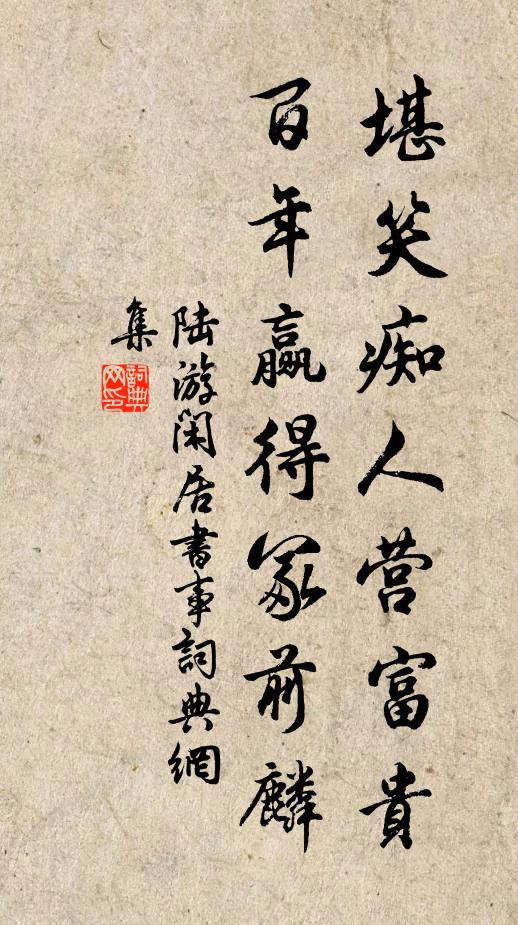 堪笑痴人营富貴
百年赢得冢前麟
陆游闲居書事詞典網
集
詞典网印